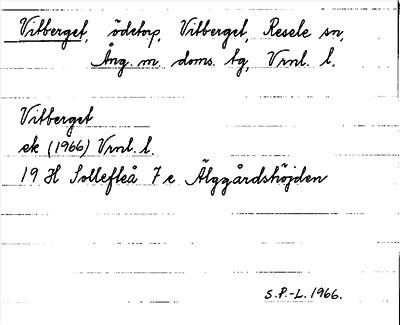 Vitberget, ödetorp, Vitberget, Resele sn,
Ång. m. doms. tg, Vrnl. l.
Vitberget
ek (1966) Vrnl. l.
19 H Sollefteå 7 e Älggårdshöjden
S.P.-L. 1966.